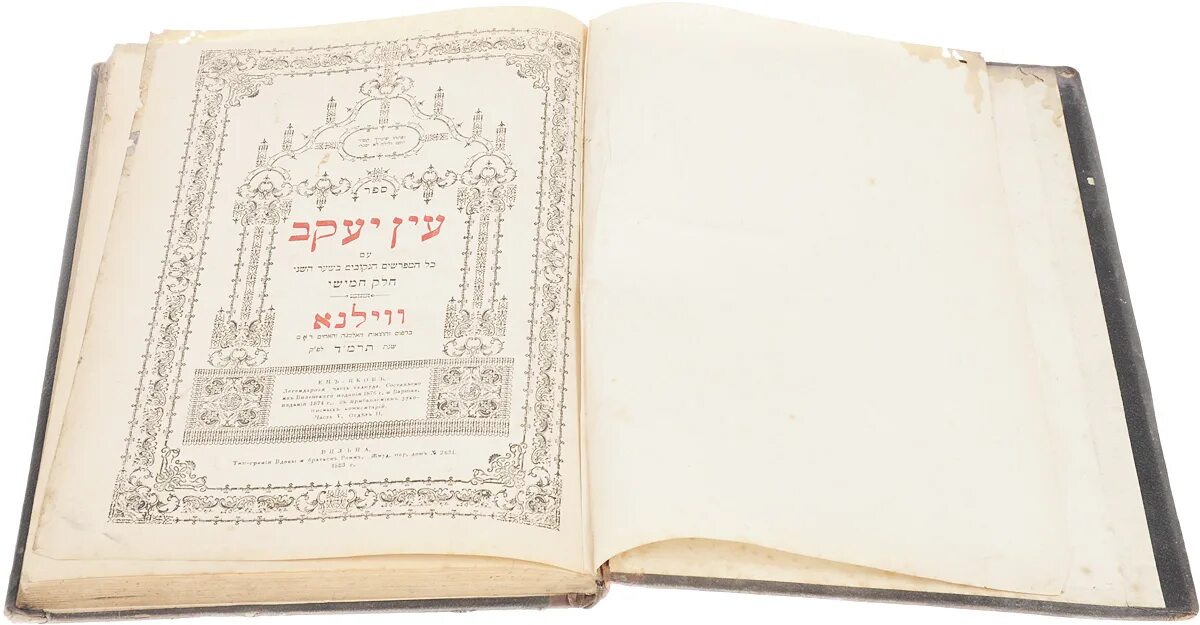 ספר
עין יעקב
עם
כל המפרשים הנקובים בשער השני
חלק חמישי
ווילנא
בדפוס והוצאות האלמנה והאחים ראם
שנת תרמ״ד לפ״ק
ЕНЪ-ЯКОВЪ,
Легендарная часть талмуда. Составлено
изъ Виленскаго изданія 1876 г. и Варшав.
изданія 1874 г., съ прибавленіемъ руко-
писныхъ комментарій.
Часть V, Отдѣлъ II.
ВИЛЬНА.
Типографія Вдовы и братьевъ Роммъ, Жмуд. пер. домъ №
1883 г.